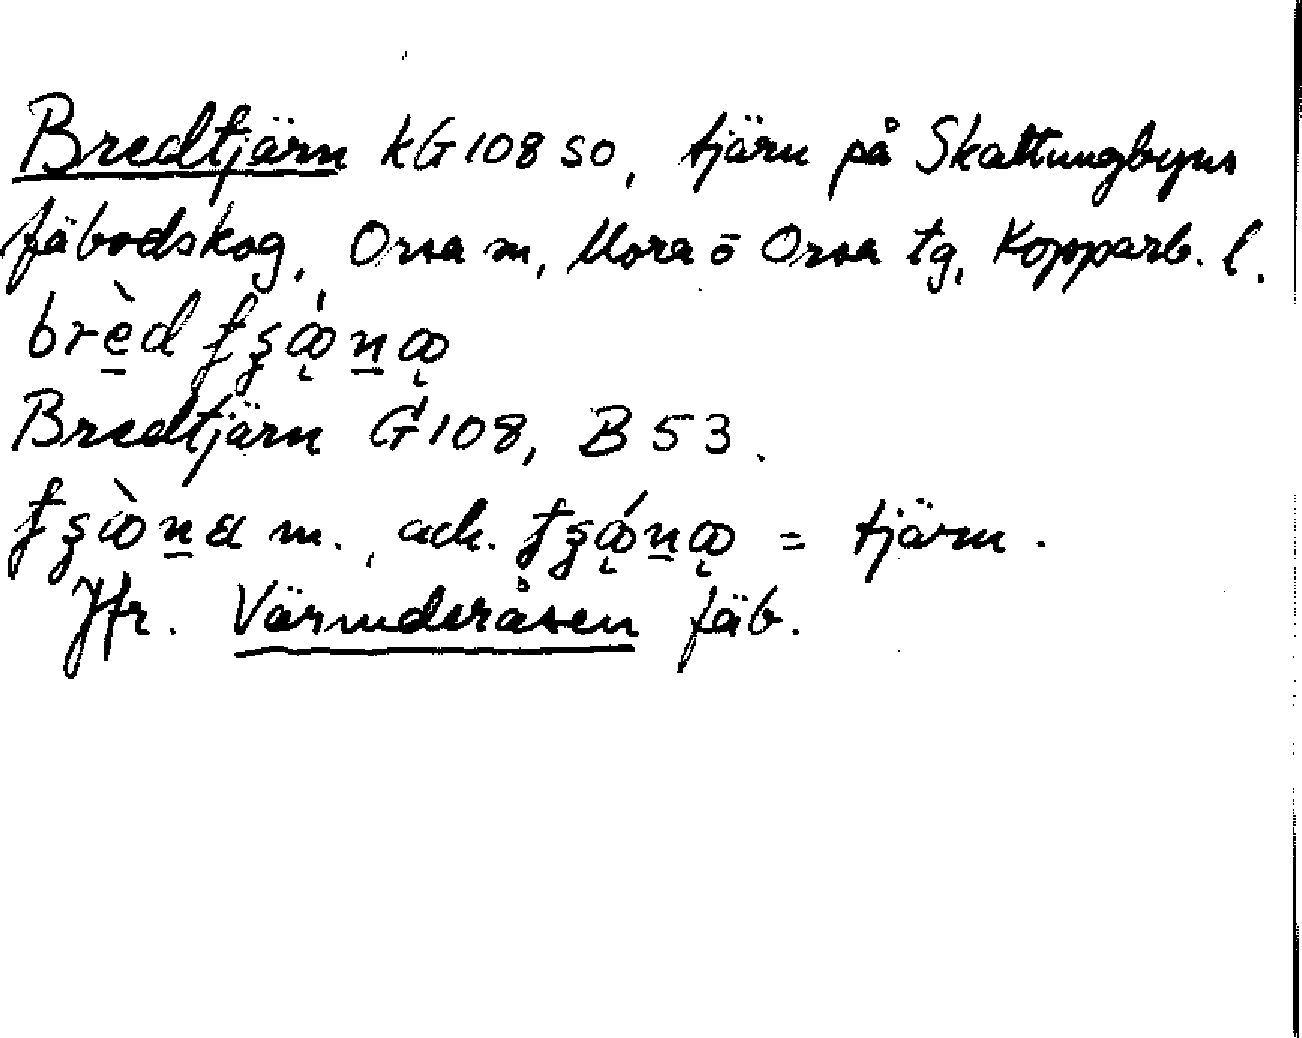 Bredtjärn kG108 SO, tjärn på Skattungbyns
fäbodskog, Orsa sn, Mora o Orsa tg, Kopparb. l.
Bredtjärn G108, B 53.
m., ack. = tjärn.
Jfr. Värmderåsen fäb.